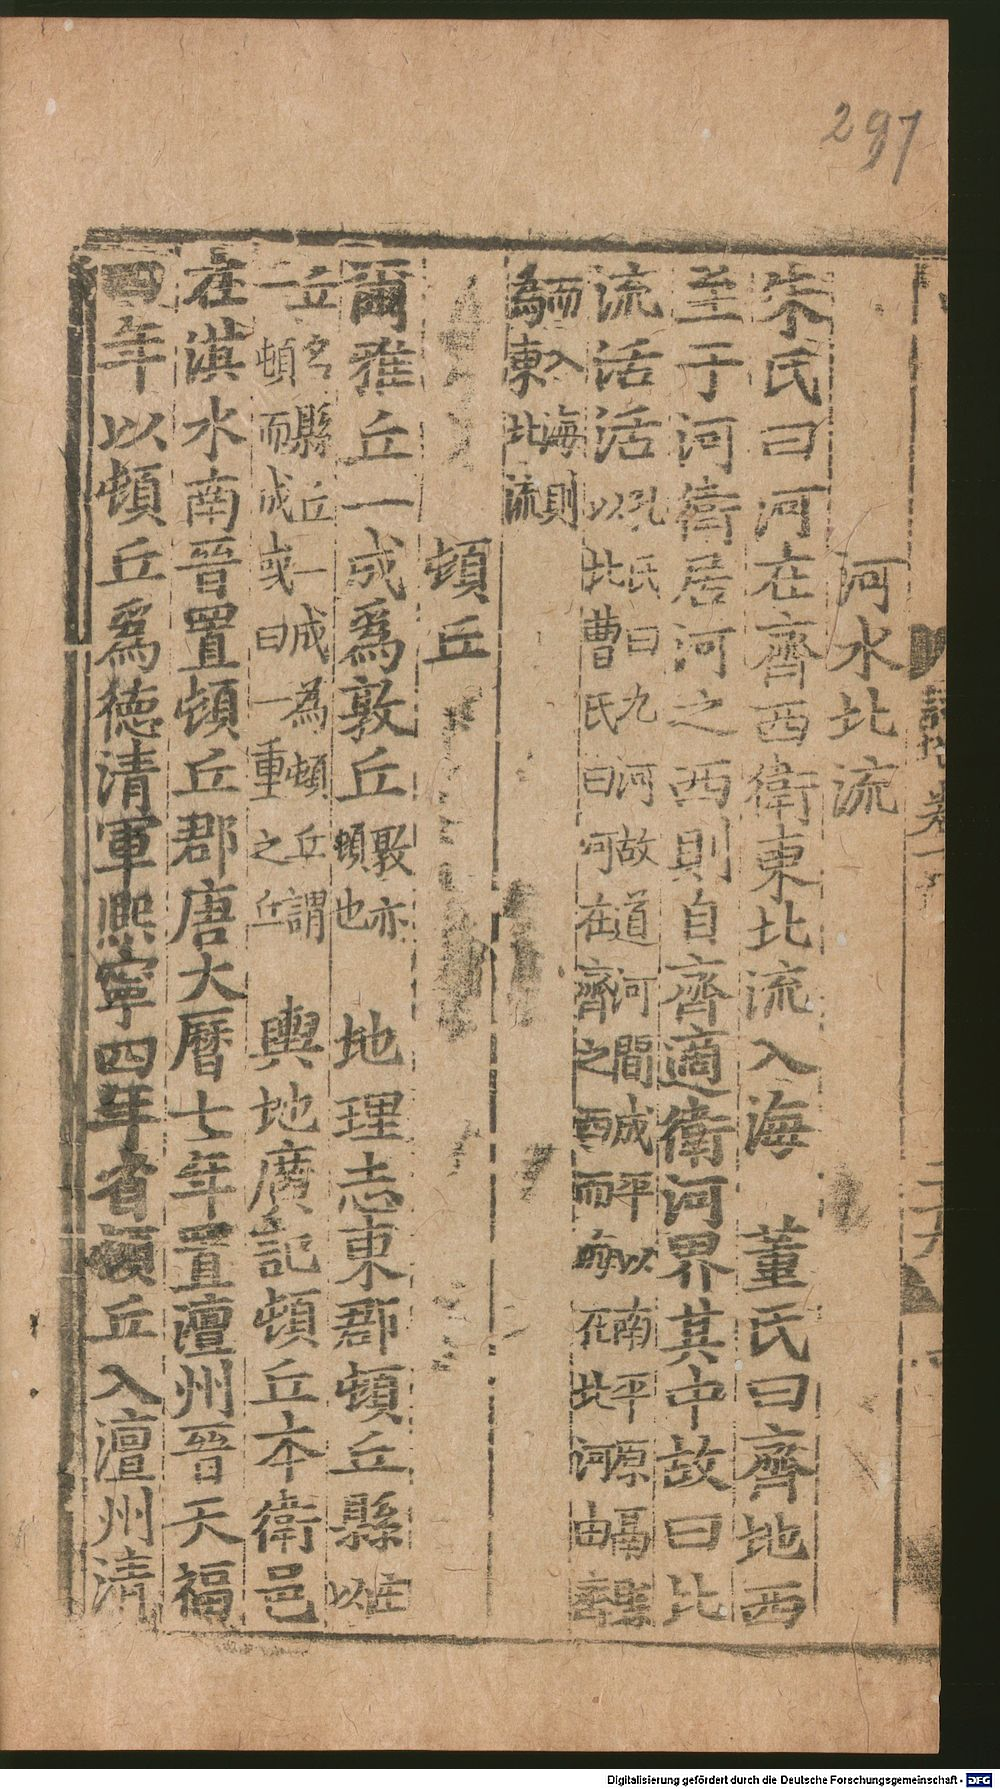 297
河水北流
朱氏曰河在齊西衛東北流入海　董氏曰齊地西
至于河衛居河之西則自齊適衛河界其中故曰北
流活活孔氏曰九河故道河間成平以南平原鬲縣
以北曹氏曰河在齊之西而海在北河由齊
而入海則
為東北流
頓丘
爾雅丘一成爲敦丘敦亦
頓也　地理志東郡頓丘縣
以
丘名縣丘一成為頓丘謂
一頓而成或曰一重之丘　輿地廣記頓丘本衛邑
在淇水南晉置頓丘郡唐大曆七年置澶州晉天福
四年以頓丘爲德清軍熙寧四年省頓丘入澶州清
Digitalisierung gefördert durch die Deutsche Forschungsgemeinschaft - DFG